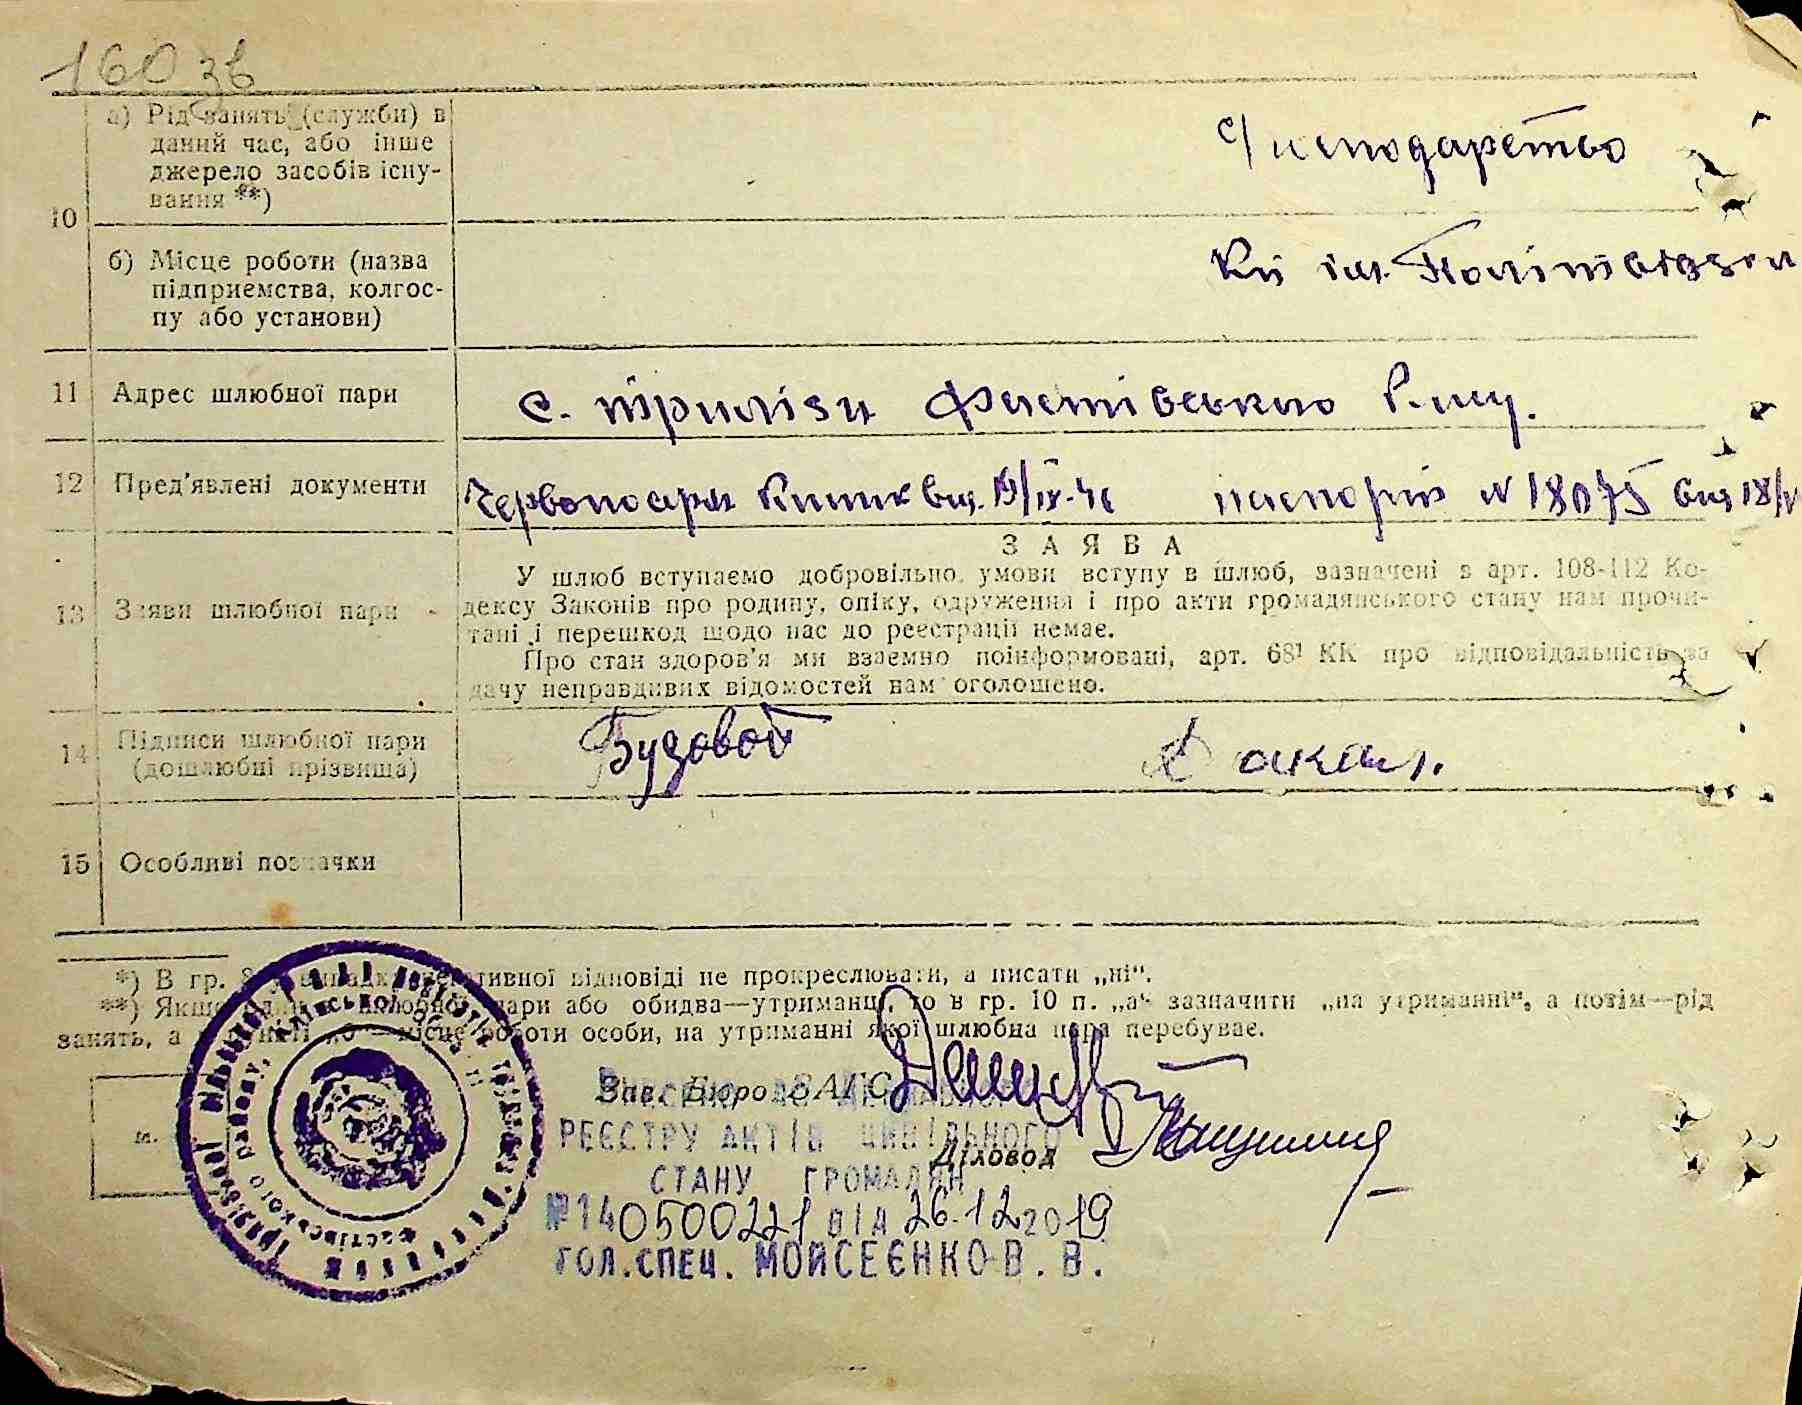 160 зв
10
а) Рід занять (служби) в
даний час, або інше
джерело засобів існу-
вання **)
с/господарство
б) Місце роботи (назва
підприємства, колгос-
пу або установи)
ім. Політвідділ
11 Адрес шлюбної пари
с. Триліси Фастівського р-ну.
12 Пред'явлені документи
Червоноарм книжк вид. паспорт N 18075 вид 18/V
ЗАЯВА
13 Заяви шлюбної пари
У шлюб вступаємо добровільно, умови вступу в шлюб, зазначені в арт. 108-112 Ко-
дексу Законів про родину, опіку, одруження і про акти громадянського стану нам прочи-
тані і перешкод щодо нас до реєстрації немає.
Про стан здоров'я ми взаємно поінформовані, арт. 68¹ КК про відповідальність за
дачу неправдивих відомостей нам оголошено.
14 Підписи шлюбної пари
(дошлюбні прізвища)
Будовой
15 Особливі позначки
*) В гр. негативної відповіді не прокреслювати, а писати „ні“.
**) Якщо шлюбної пари або обидва—утриманці, то в гр. 10 п. „а“ зазначити „на утриманні“, а потім—рід
занять, а місце роботи особи, на утриманні якої шлюбна пара перебуває.
Зав. Бюро ЗАГС
м.
РЕЄСТРУ АКТІВ ЦИВІЛЬНОГО
Діловод
СТАНУ ГРОМАДЯН
№ 140500221 ВІД 26.12 2019
ГОЛ.СПЕЦ. МОЙСЕЄНКО В. В.